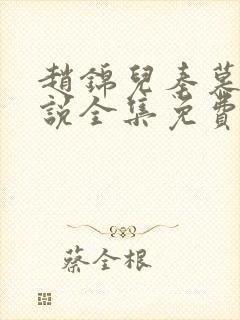 趙錦兒秦慕
說全集免費
蔡全根